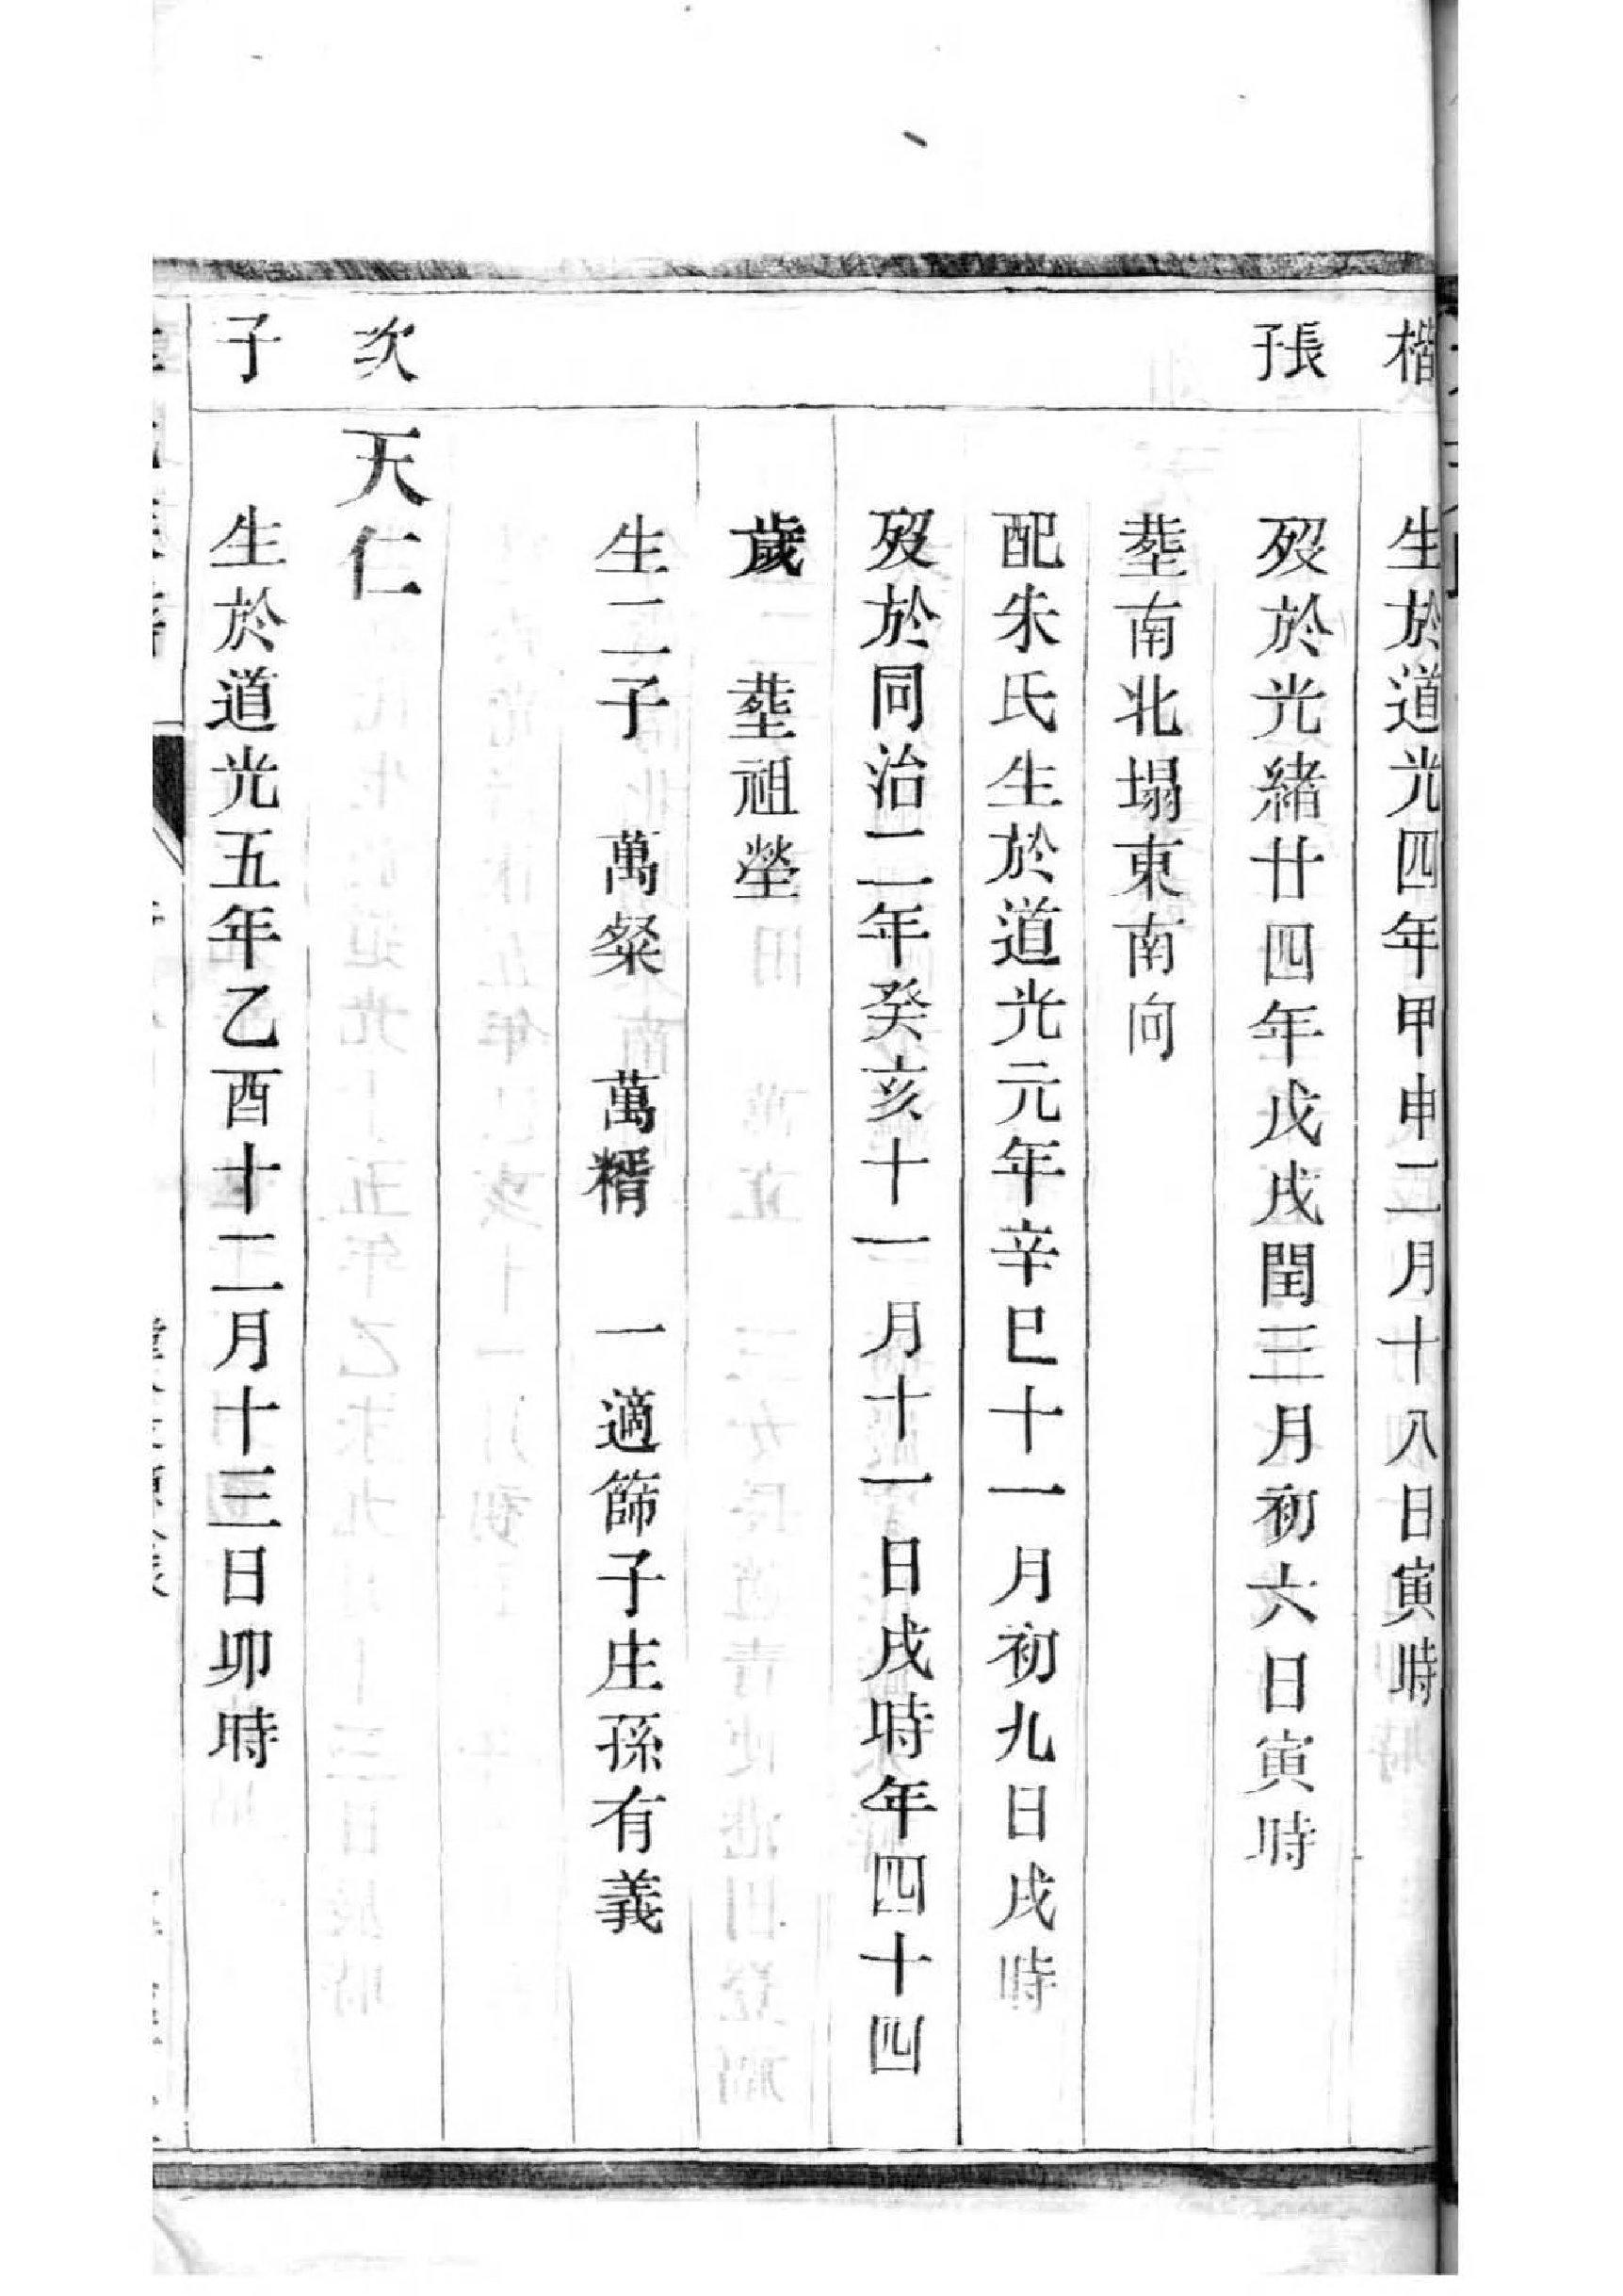 楷
生於道光四年甲申二月十八日寅時
長子
歿於光緒廿四年戊戌閏三月初六日寅時
塟南北塌東南向
配朱氏生於道光元年辛巳十一月初九日戌時
歿於同治二年癸亥十一月十一日戌時年四十四
歲 塟祖塋
生二子 萬粲 萬糈 一適篩子庄孫有義
次
天仁
子
生於道光五年乙酉十二月十三日卯時